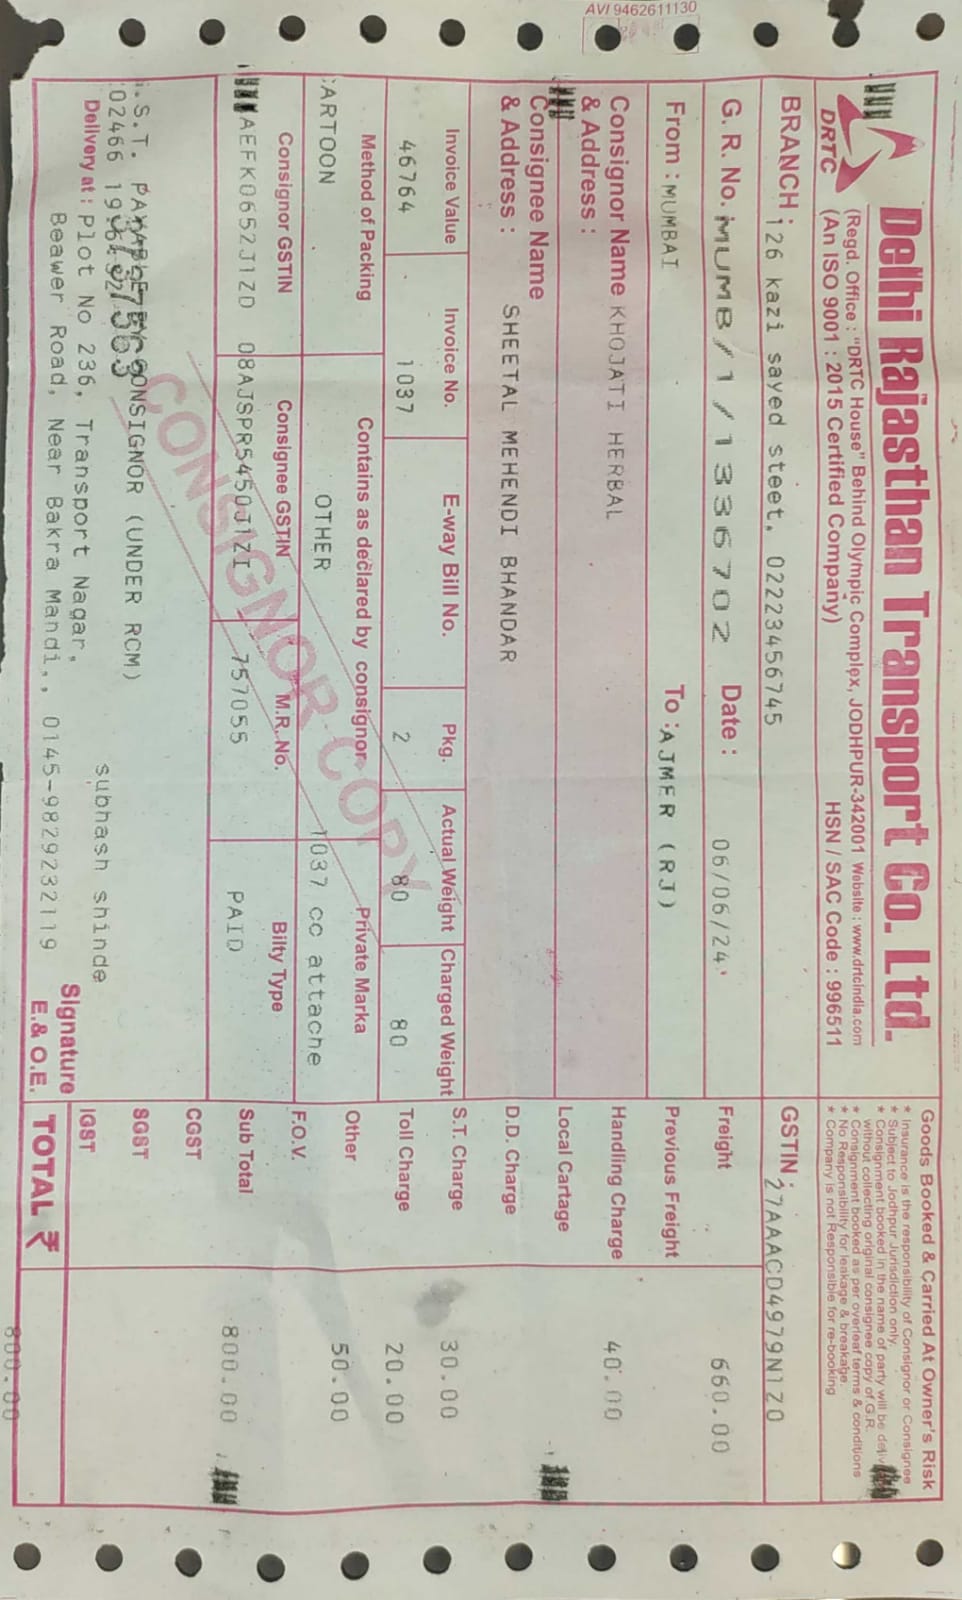 AVI 9462611130
Delhi Rajasthan Transport Co. Ltd.
DRTC
(Regd. Office : "DRTC House" Behind Olympic Complex, JODHPUR-342001 Website : www.drtcindia.com
(An ISO 9001 : 2015 Certified Company)
HSN / SAC Code : 996511
Goods Booked & Carried At Owner's Risk
* Insurance is the responsibility of Consignor or Consignee
* Subject to Jodhpur Jurisdiction only.
* Consignment booked in the name of party will be
without collecting original consignee copy of G.R.
* Consignment booked as per overleaf terms & conditions
* No Responsibility for leakage & breakage.
* Company is not Responsible for re-booking
BRANCH : 126 kazi sayed steet, 02223456745
GSTIN : 27AAACD4979N1Z0
G. R. No. MUMB/1/1336702 Date : 06/06/24
Freight 660.00
From : MUMBAI To : AJMER (RJ)
Previous Freight
Consignor Name KHOJATI HERBAL
& Address :
Handling Charge 40.00
Consignee Name
& Address : SHEETAL MEHENDI BHANDAR
Local Cartage
D.D. Charge
Invoice Value Invoice No. E-way Bill No. Pkg. Actual Weight Charged Weight
46764 1037 2 80 80
S.T. Charge 30.00
Toll Charge 20.00
Method of Packing Contains as declared by consignor Private Marka
CARTOON OTHER 1037 cc attache
Other 50.00
F.O.V.
Consignor GSTIN Consignee GSTIN M.R. No. Bilty Type
AEFK0652J1ZD 08AJSPR5450J1ZI 757055 PAID
Sub Total 800.00
CONSIGNOR COPY
CGST
.S.T. CONSIGNOR (UNDER RCM)
SGST
02466
subhash shinde
IGST
Delivery at : Plot No 236, Transport Nagar,
Beawer Road, Near Bakra Mandi,, 0145-9829232119
Signature
E. & O.E.
TOTAL ₹
800.00